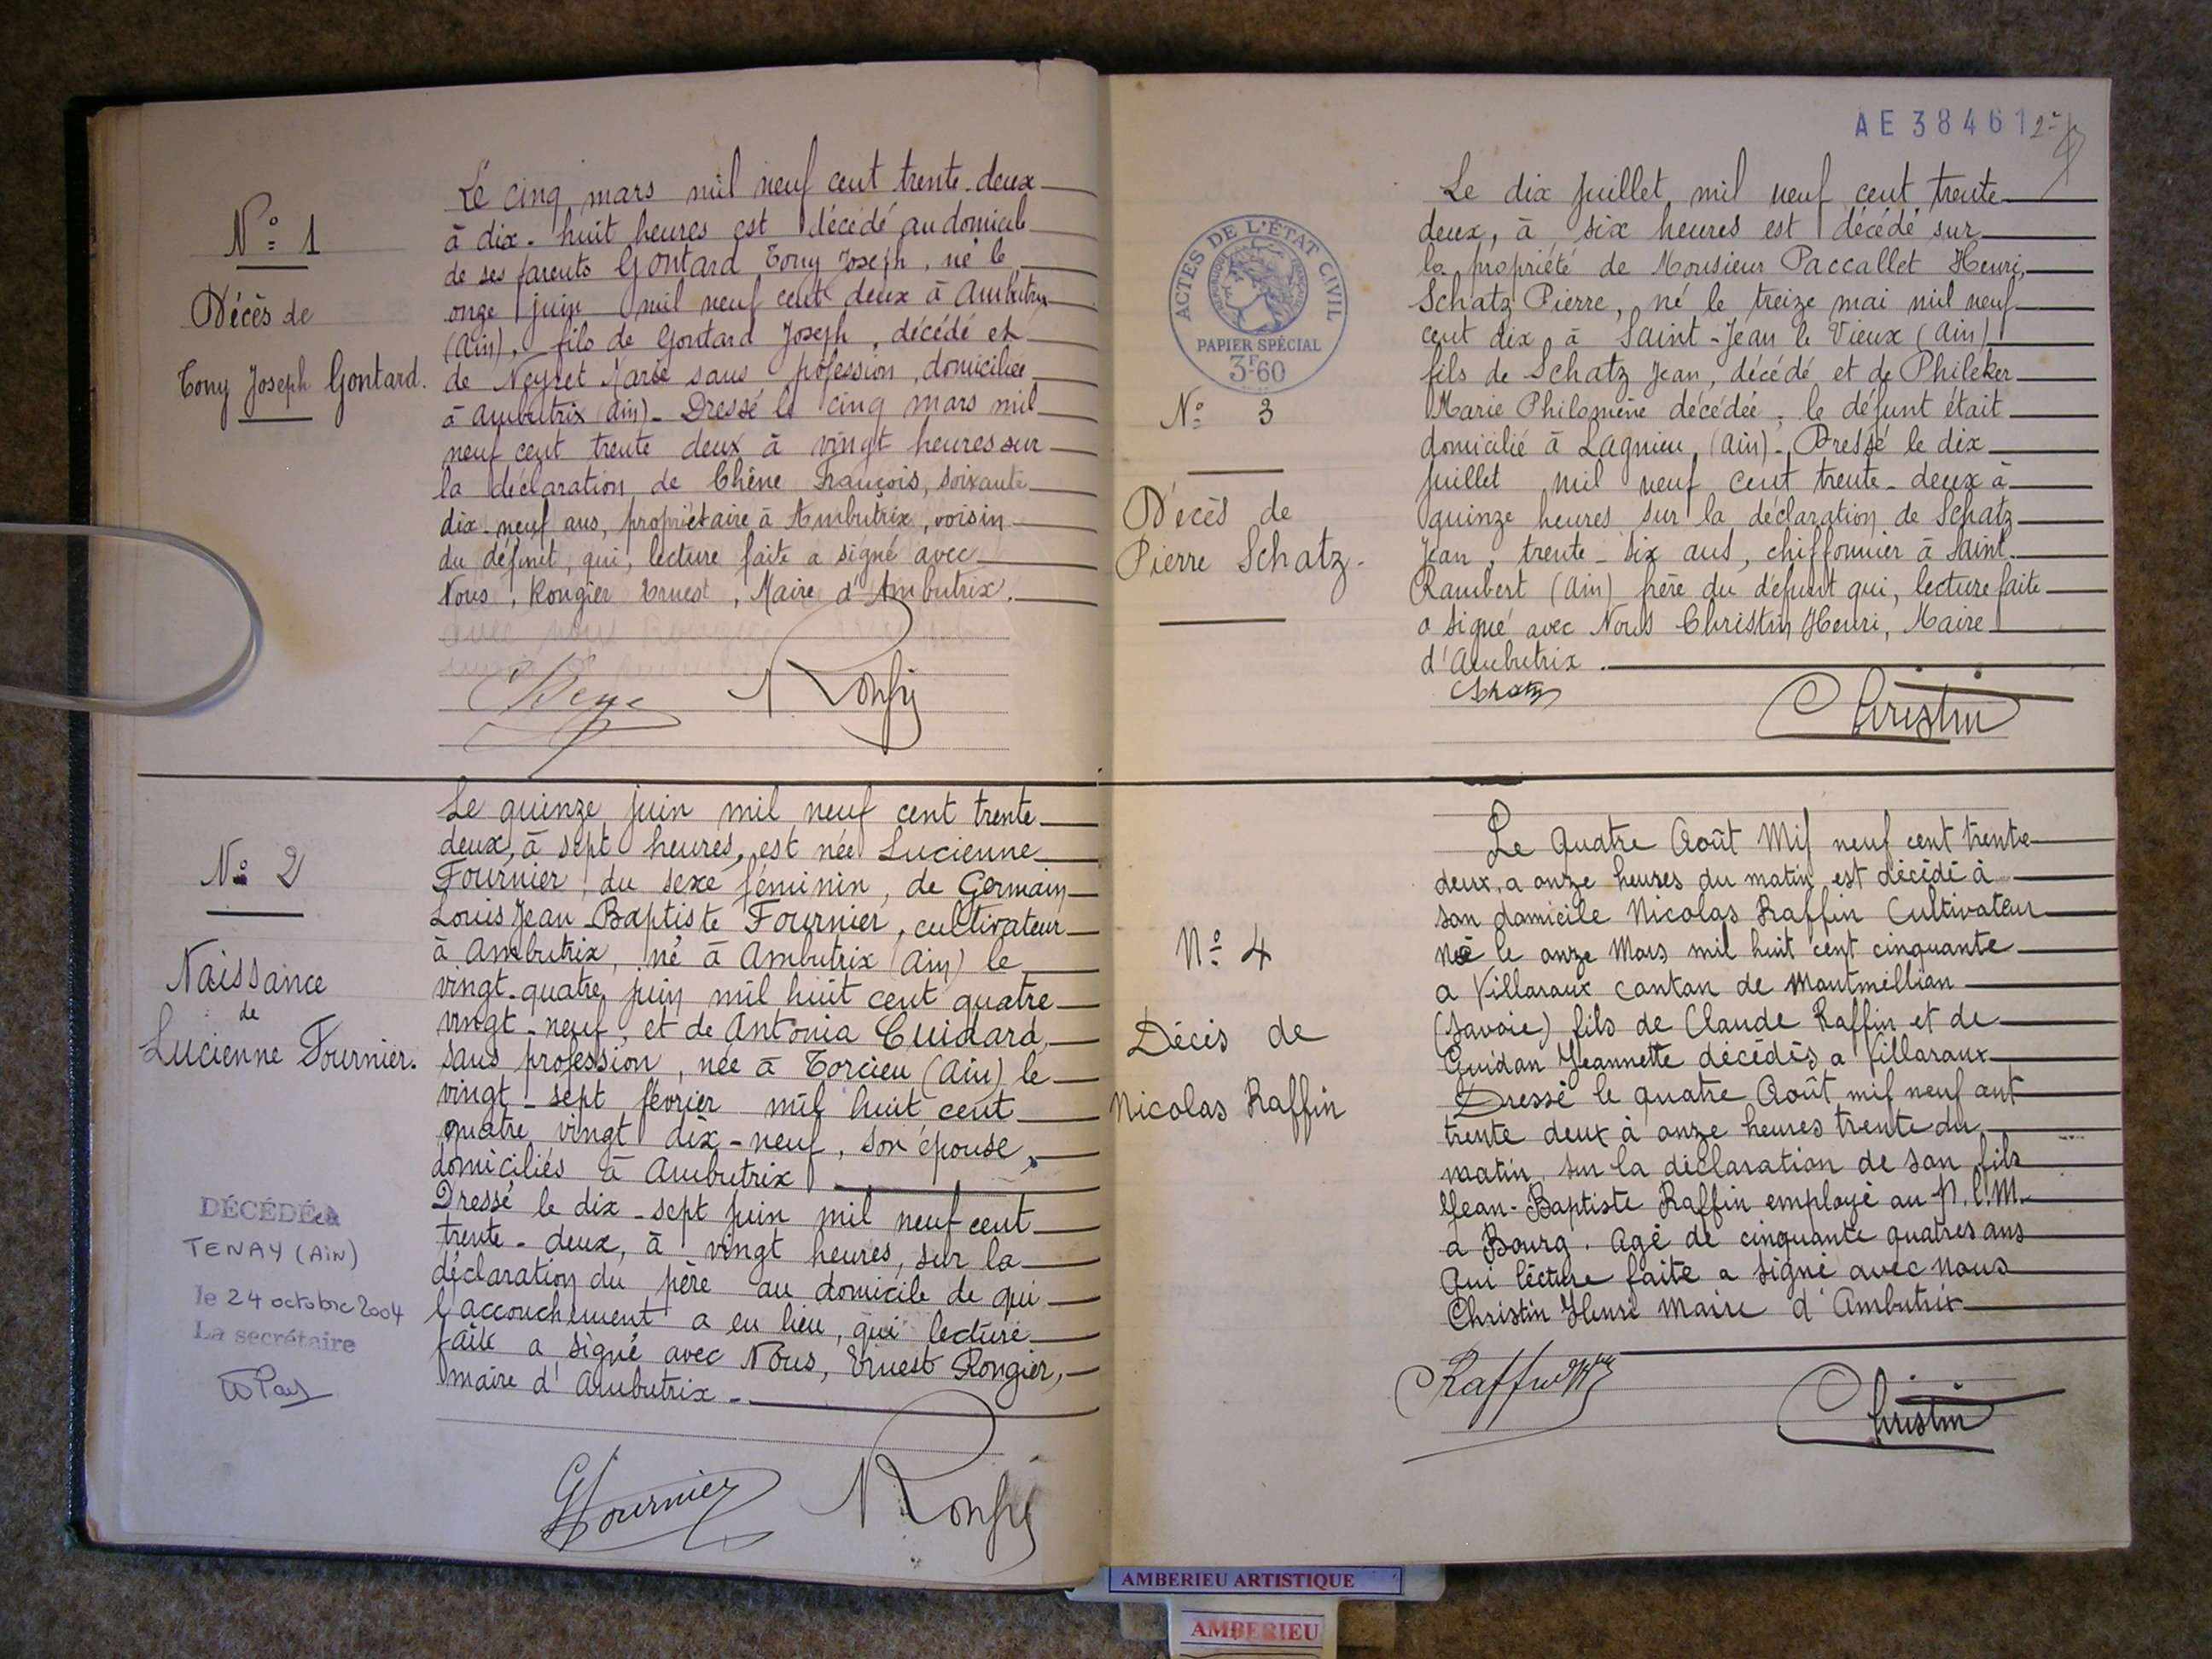 N° 1
Décès de
Tony Joseph Gontard.
Le cinq mars mil neuf cent trente-deux
à dix-huit heures est décédé au domicile
de ses parents Gontard Tony Joseph, né le
onze juin mil neuf cent deux à Ambutrix
(Ain), fils de Gontard Joseph, décédé et
de Neyret Marie sans profession, domiciliée
à Ambutrix (Ain)- Dressé le cinq mars mil
neuf cent trente deux à vingt heures sur
la déclaration de Chêne François, soixante
dix-neuf ans, propriétaire à Ambutrix, voisin
du défunt, qui, lecture faite a signé avec
Nous, Rougier Ernest, Maire d'Ambutrix.
N° 2
Naissance
de
Lucienne Fournier.
DÉCÉDÉE à
TENAY (AiN)
le 24 octobre 2004
La secrétaire
Le quinze juin mil neuf cent trente
deux, à sept heures, est née Lucienne
Fournier, du sexe féminin, de Germain
Louis Jean Baptiste Fournier, cultivateur
à Ambutrix, né à Ambutrix (Ain) le
vingt-quatre juin mil huit cent quatre
vingt-neuf, et de Antonia
sans profession, née à Torcieu (Ain) le
vingt-sept février mil huit cent
quatre vingt dix-neuf, son épouse,
domiciliés à Ambutrix
Dressé le dix-sept juin mil neuf cent
trente-deux, à vingt heures, sur la
déclaration du père au domicile de qui
l'accouchement a eu lieu, qui lecture
faite a signé avec Nous, Ernest Rougier,
maire d'Ambutrix-
GFournier
AE 38461
2e
ACTES DE L'ÉTAT CIVIL
RÉPUBLIQUE FRANÇAISE
PAPIER SPÉCIAL
3F60
N° 3
Décès de
Pierre Schatz-
Le dix juillet mil neuf cent trente
deux, à six heures est décédé sur
la propriété de Monsieur Paccallet Henri,
Schatz Pierre, né le treize mai mil neuf
cent dix à Saint-Jean le Vieux (Ain)
fils de Schatz Jean, décédé et de Phileker
Marie Philomène décédée; le défunt était
domicilié à Lagnieu (Ain)- Dressé le dix
juillet mil neuf cent trente-deux à
quinze heures sur la déclaration de Schatz
Jean, trente-six ans, chiffonnier à Saint-
Rambert (Ain) frère du défunt qui, lecture faite
a signé avec Nous Christin Henri, Maire
d'Ambutrix.
Schatz
Christin
N° 4
Décès de
Nicolas Raffin
Le Quatre Août Mil neuf cent trente
deux, a onze heures du matin est décédé à
son domicile Nicolas Raffin Cultivateur
né le onze Mars mil huit cent cinquante
a Villaraux canton de Montmellian
(Savoie) fils de Claude Raffin et de
Guidan Jeannette décédés a Villaraux
Dressé le quatre Août mil neuf cent
trente deux à onze heures trente du
matin, sur la déclaration de son fils
Jean-Baptiste Raffin employé au P.L.M.
a Bourg. Agé de cinquante quatres ans
Qui lecture faite a signé avec nous
Christin Henri Maire d'Ambutrix
Raffin
Christin
AMBERIEU ARTISTIQUE
AMBERIEU